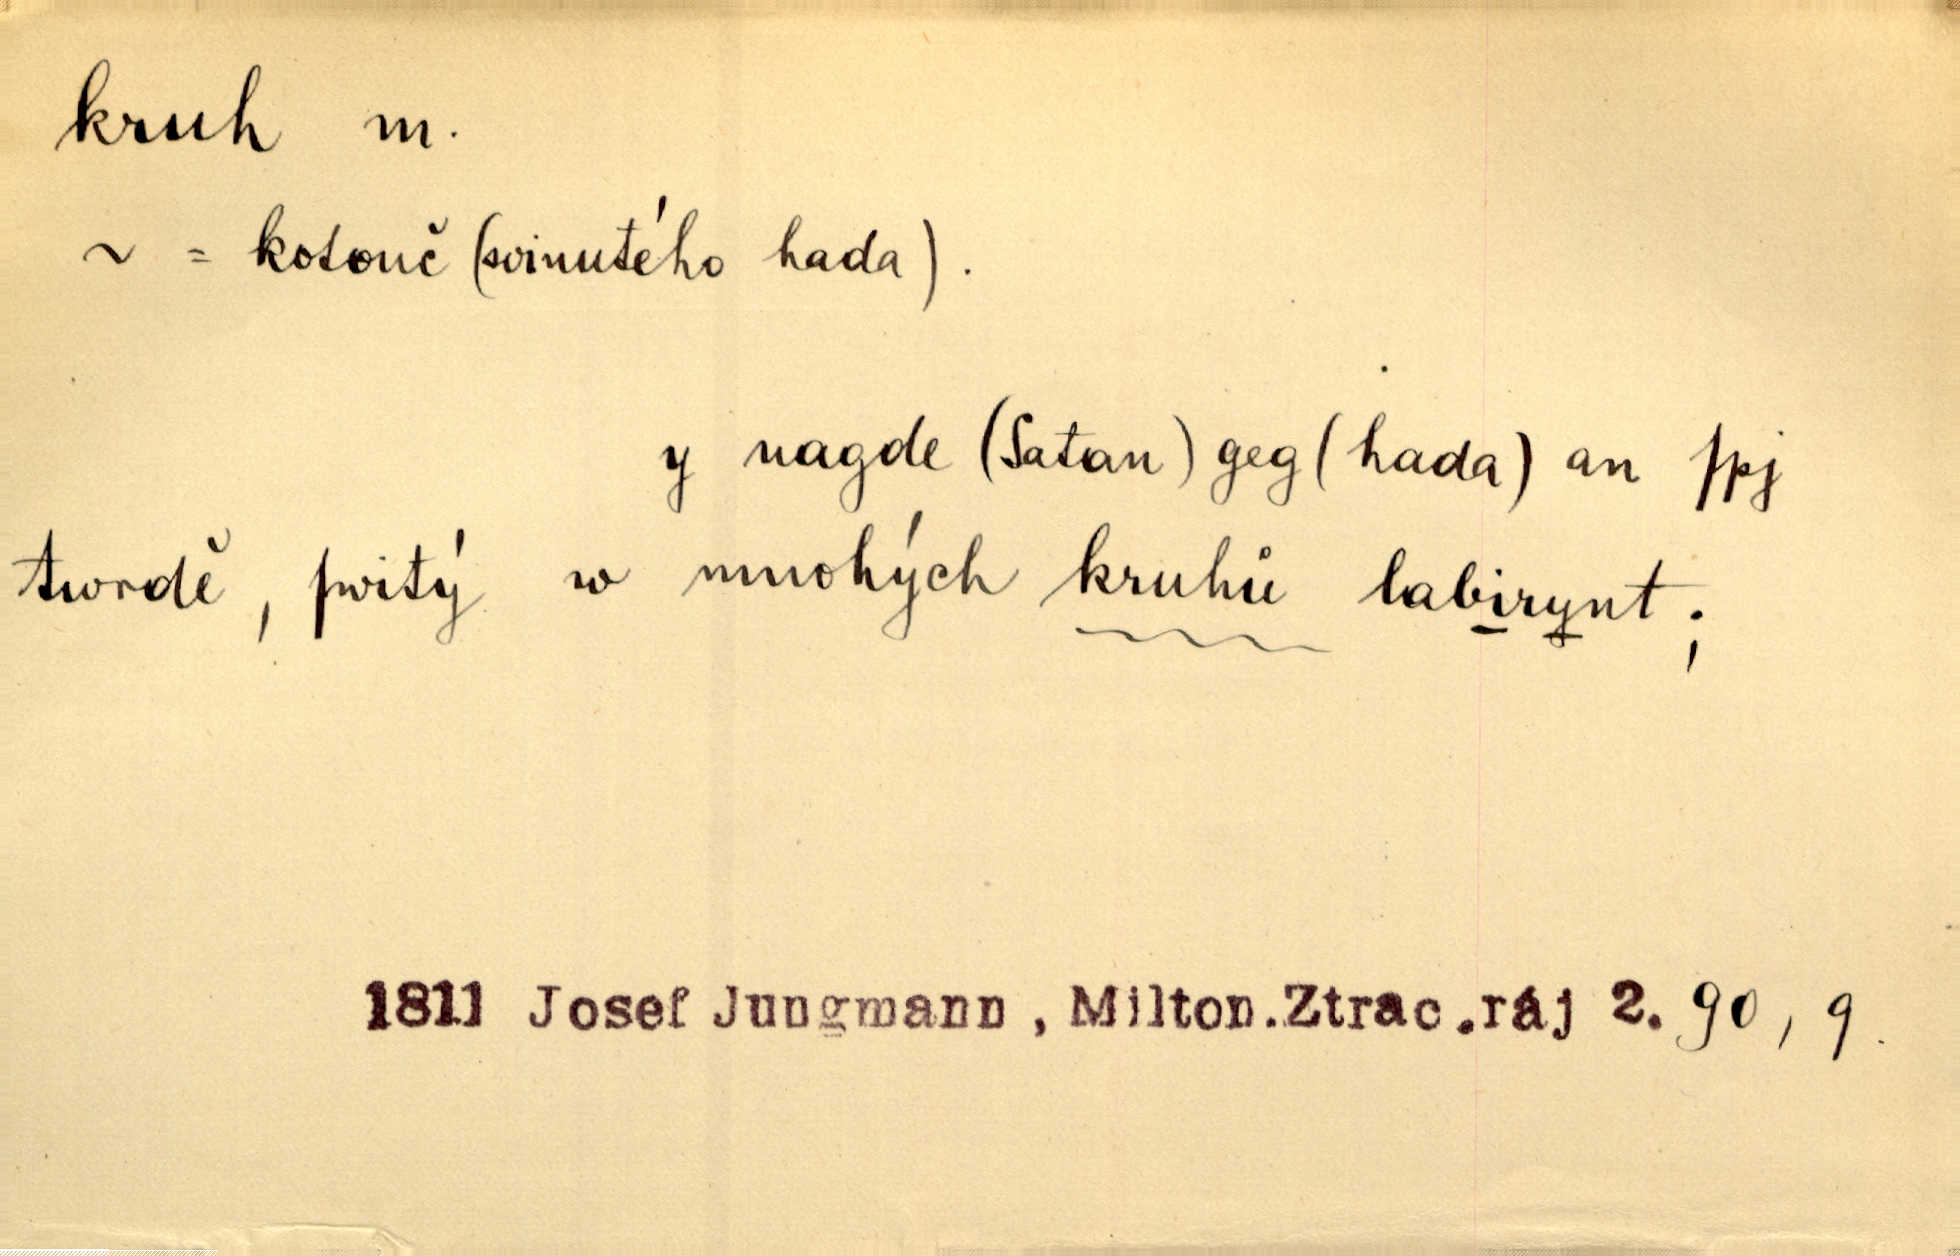 kruh m.
~ = kotouč (svinutého hada).
y nagde (Satan) geg (hada) an ſpj
twrdě, ſwitý w mnohých kruhů labirynt;
1811 Josef Jungmann, Milton.Ztrac.ráj 2. 90, 9.